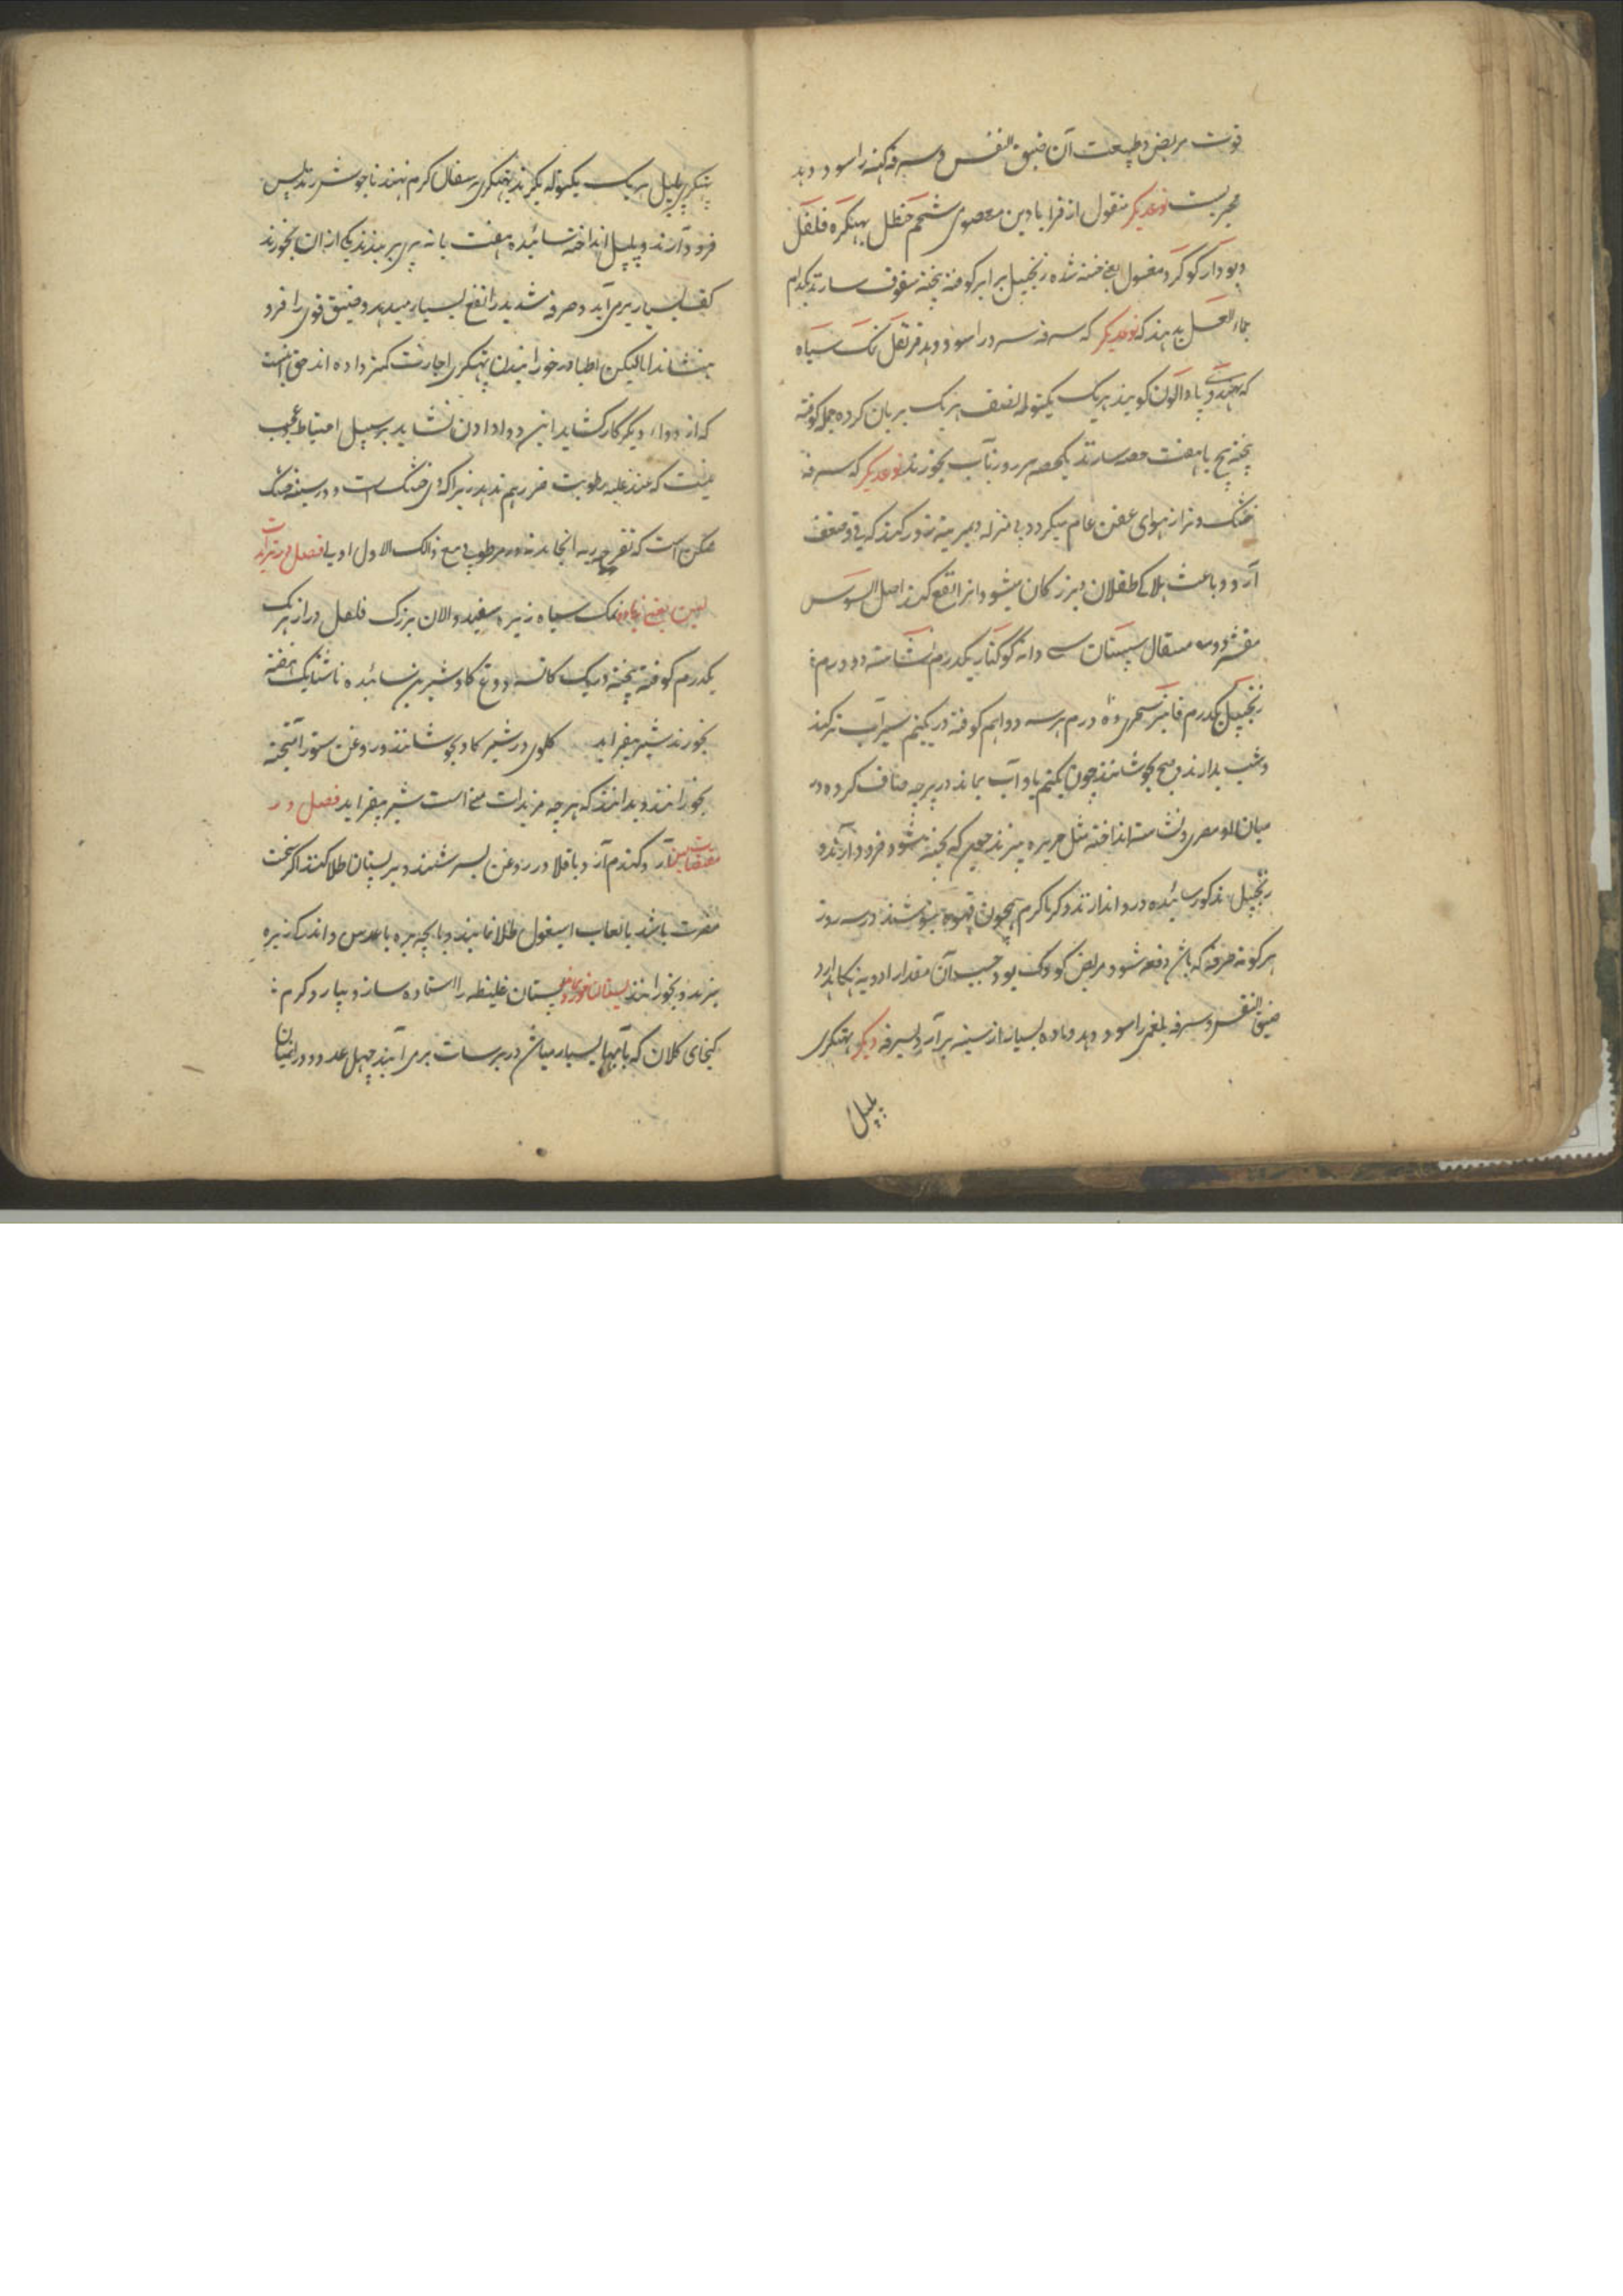 قوت مریض و طبیعت آن ضیق النفس و سرفه کهنه را سود دهد
مجربست نوعدیگر منقول از قرابادین معصومی شحم حنظل بهنکره فلفل
دیودار کوکرد مغسول زنجبیل برابر کوفته پخته سفوف سازند یکدام
بماء العسل بدهند که نوعدیگر که سرفه سرد را سود دهد قرنفل نمک سیاه
که بهندوی پادالون کویند هریک یکتوله نصف هریک بریان کرده جمله کوفته
پخته پنج یا هفت حصه سازند یکحصه هر روز بآب بخورند نوعدیگر که سرفه
خشک و تر از هوای عفن عام میکردد
آرد و باعث هلاکی طفلان و بزرکان میشود و انرا نفع کند اصل السوس
مقشر دو مثقال سپستان سی دانه کوکنار یکدرم نشاسته دو درم
زنجبیل یکدرم فانیذ سجزی ده درم هرسه دوا بهم کوفته در یکنیم سیر آب تر کنند
و شب بدارند و صبح بجوشانند چون یکنیم پاو آب بماند در پارچه صاف کرده در
میان او مصری و نشاسته انداخته مثل حریره بپزند چون که پخته شود فرود آرند و
زنجبیل مذکور سائیده درو اندازند و کرما کرم همچون قهوه بنوشند در سه روز
هرکونه سرفه که باشد دفعه شود و مریض کودک بود حسب آن مقدار ادویه بکاهد
ضیق النفس و سرفه بلغمی را سود دهد و ماده بسیار از سینه برآرد بسرفه دیکر پهتکری
پلپل
پهتکری پلپل هریک یکتوله بکیرند پهتکری بر سفال کرم نهند تا جوش زند پس
فرود آرند و پلپل انداخته سائیده هفت یا نه پری بر بندند یکی از ان بخورند
کف بسیار برمی آید و سرفه شدید را نفع بسیار میدهد و ضیق قوی را فرو
بنشاند اما لیکن اطبا در خورانیدن پهتکری اجازت کمتر داده اند حق اینست
که از دواء دیکر کار کشاید این دوا دادن نشاید بر سبیل احتیاط عجب
نیست که عند غلبه رطوبت ضرر هم ندهد زیرا که وی خشک است و در سینه خشک
ممکن است که تقریح ریه انجامد نه در مرطوب مع ذالک الاول اولی فصل در مزیدات
لبن یعنی زیاده نمک سیاه زیره سفید والان بزرک فلفل دراز هریک
یکدرم کوفته پخته در یک کاسه دوغ کاو شیرین سائیده ناشتا یک هفته
بخورند شیر بیفزاید کلونجی در شیر کاو بجوشانند و روغن ستور آمیخته
بخورانند و بدانند که هرچه مزیدات منی است شیر بیفزاید فصل در
منقصات لبن آرد کندم آرد باقلا در روغن بسرشند و بر پستان طلا کنند اکر سخت
مضرت باشد بالعاب اسپغول طلا نمایند و پاچه بره با عدس و اندک زیره
بپزند و بخورانند پستان غلیظه را استاده سازد بیارد کرم
کیخای کلان که بآبهای بسیار میباشد در برسات برمی آیند چهل عدد و در انبان